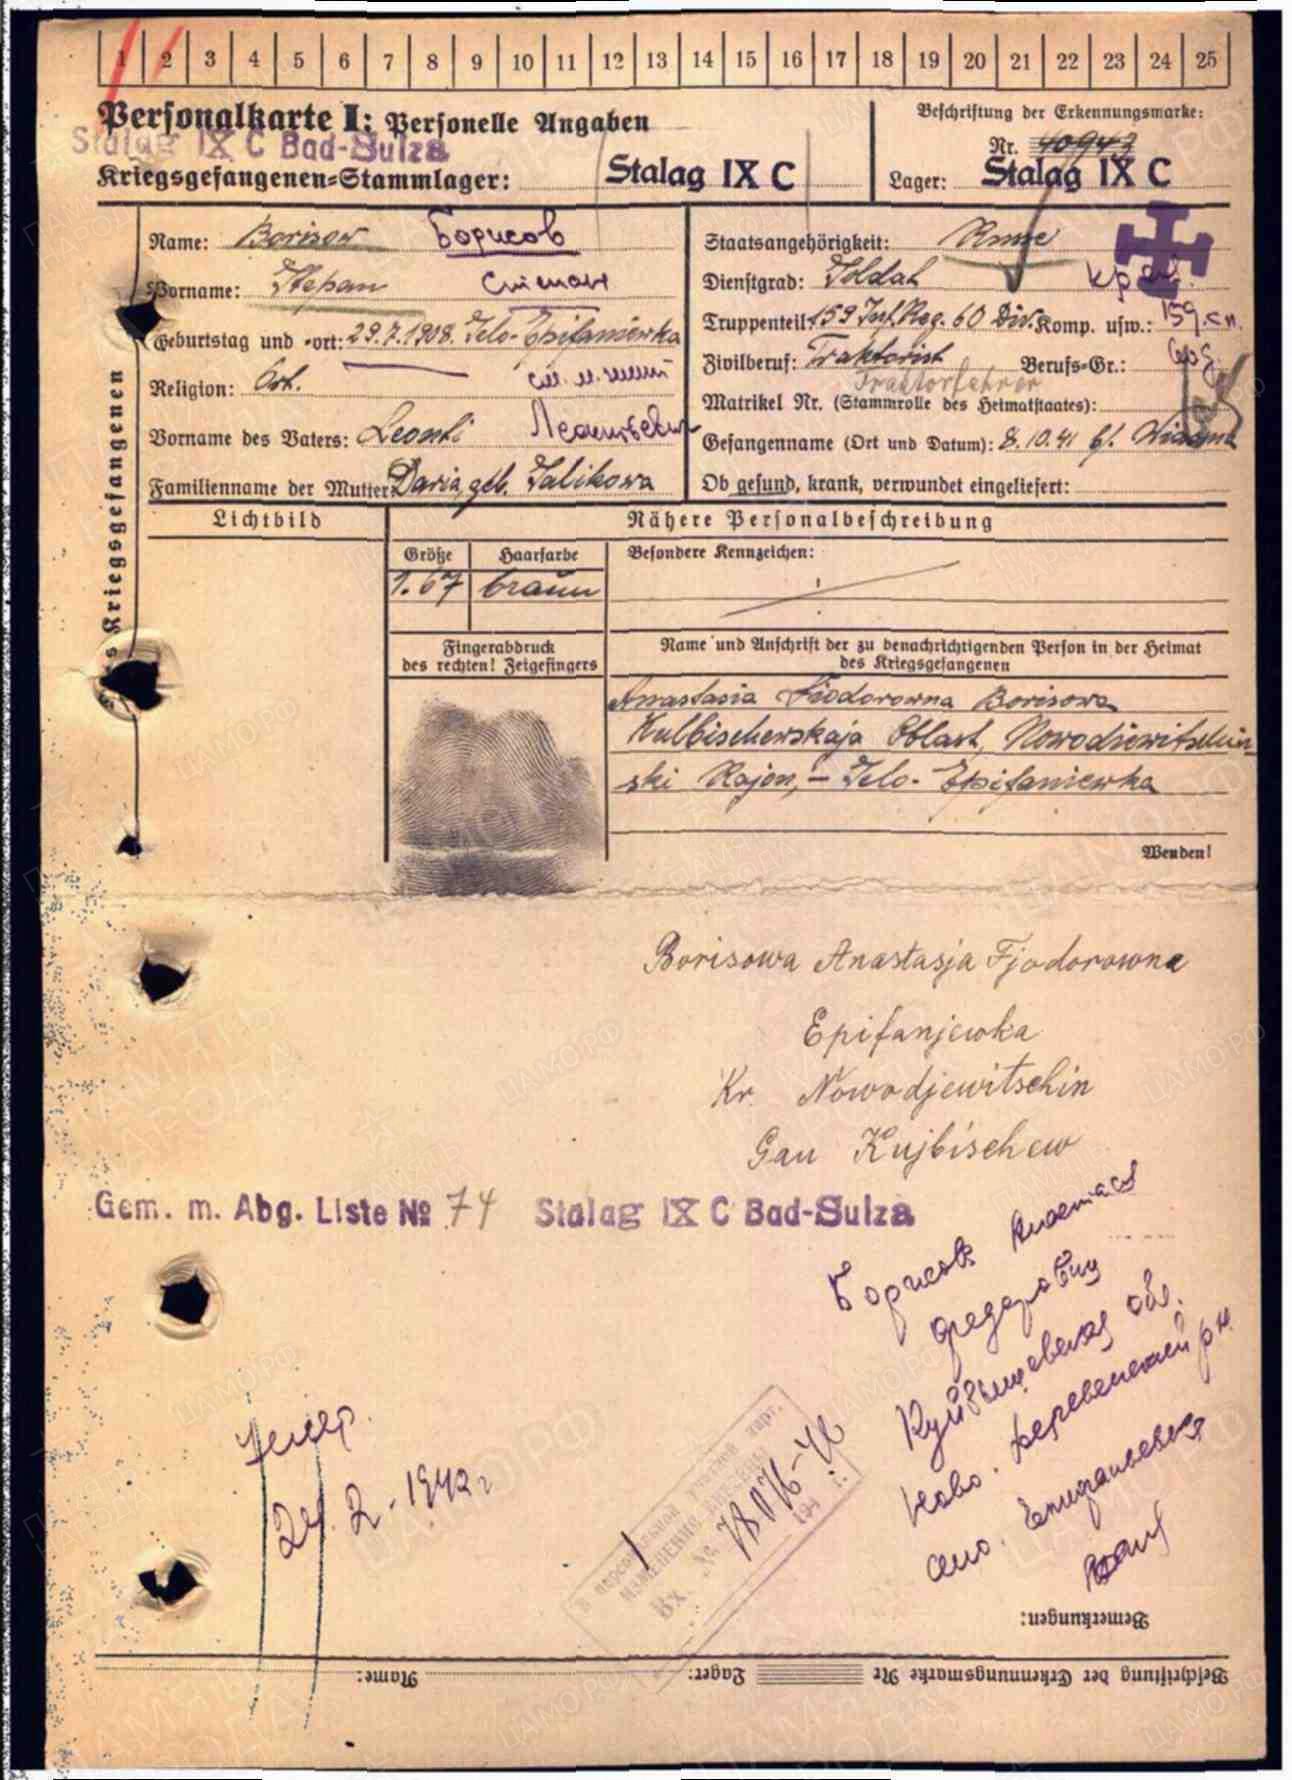 1 2 3 4 5 6 7 8 9 10 11 12 13 14 15 16 17 18 19 20 21 22 23 24 25
Personalkarte I: Personelle Angaben
Beschriftung der Erkennungsmarke:
Stalag IX C Bad-Sulza
Nr. 40943
Kriegsgefangenen=Stammlager: Stalag IX C
Lager: Stalag IX C
Name: Borisow Борисов
Staatsangehörigkeit: Russe
Vorname: Stepan Степан
Dienstgrad: Soldat
Geburtstag und -ort: 29.7.1908. Selo-Epifaniewka
Truppenteil: 159 Inf. Reg. 60 Div. Komp. usw.: 159 сп.
Zivilberuf: Traktorist Berufs-Gr.:
Traktorfahrer
Religion: Ort.
Matrikel Nr. (Stammrolle des Heimatstaates):
Vorname des Vaters: Leonti
Gefangenname (Ort und Datum): 8.10.41 b/. Wiasma
Familienname der Mutter: Daria, geb. Salikowa
Ob gesund, krank, verwundet eingeliefert:
des Kriegsgefangenen
Lichtbild
Nähere Personalbeschreibung
Größe Haarfarbe Besondere Kennzeichen:
1.67 braun
Fingerabdruck
des rechten! Zeigefingers
Name und Anschrift der zu benachrichtigenden Person in der Heimat
des Kriegsgefangenen
Anastasia Fiodorowna Borisowa
Kulbischewskaja Oblast, Nowodiewitschin
ski Rajon, – Selo- Epifaniewka
Wenden!
Borisowa Anastasja Fjodorowna
Epifanjewka
Kr. Nowodjewitschin
Gau Kujbischew
Gem. m. Abg. Liste № 74 Stalag IX C Bad-Sulza
Борисова
Куйбышевская обл.
Ново.
село. Епифаньевка
умер.
24. 2 - 1942 г
Вх. № 78076-46
194 г.
Bemerkungen:
Beschriftung der Erkennungsmarke Nr Lager: Name: